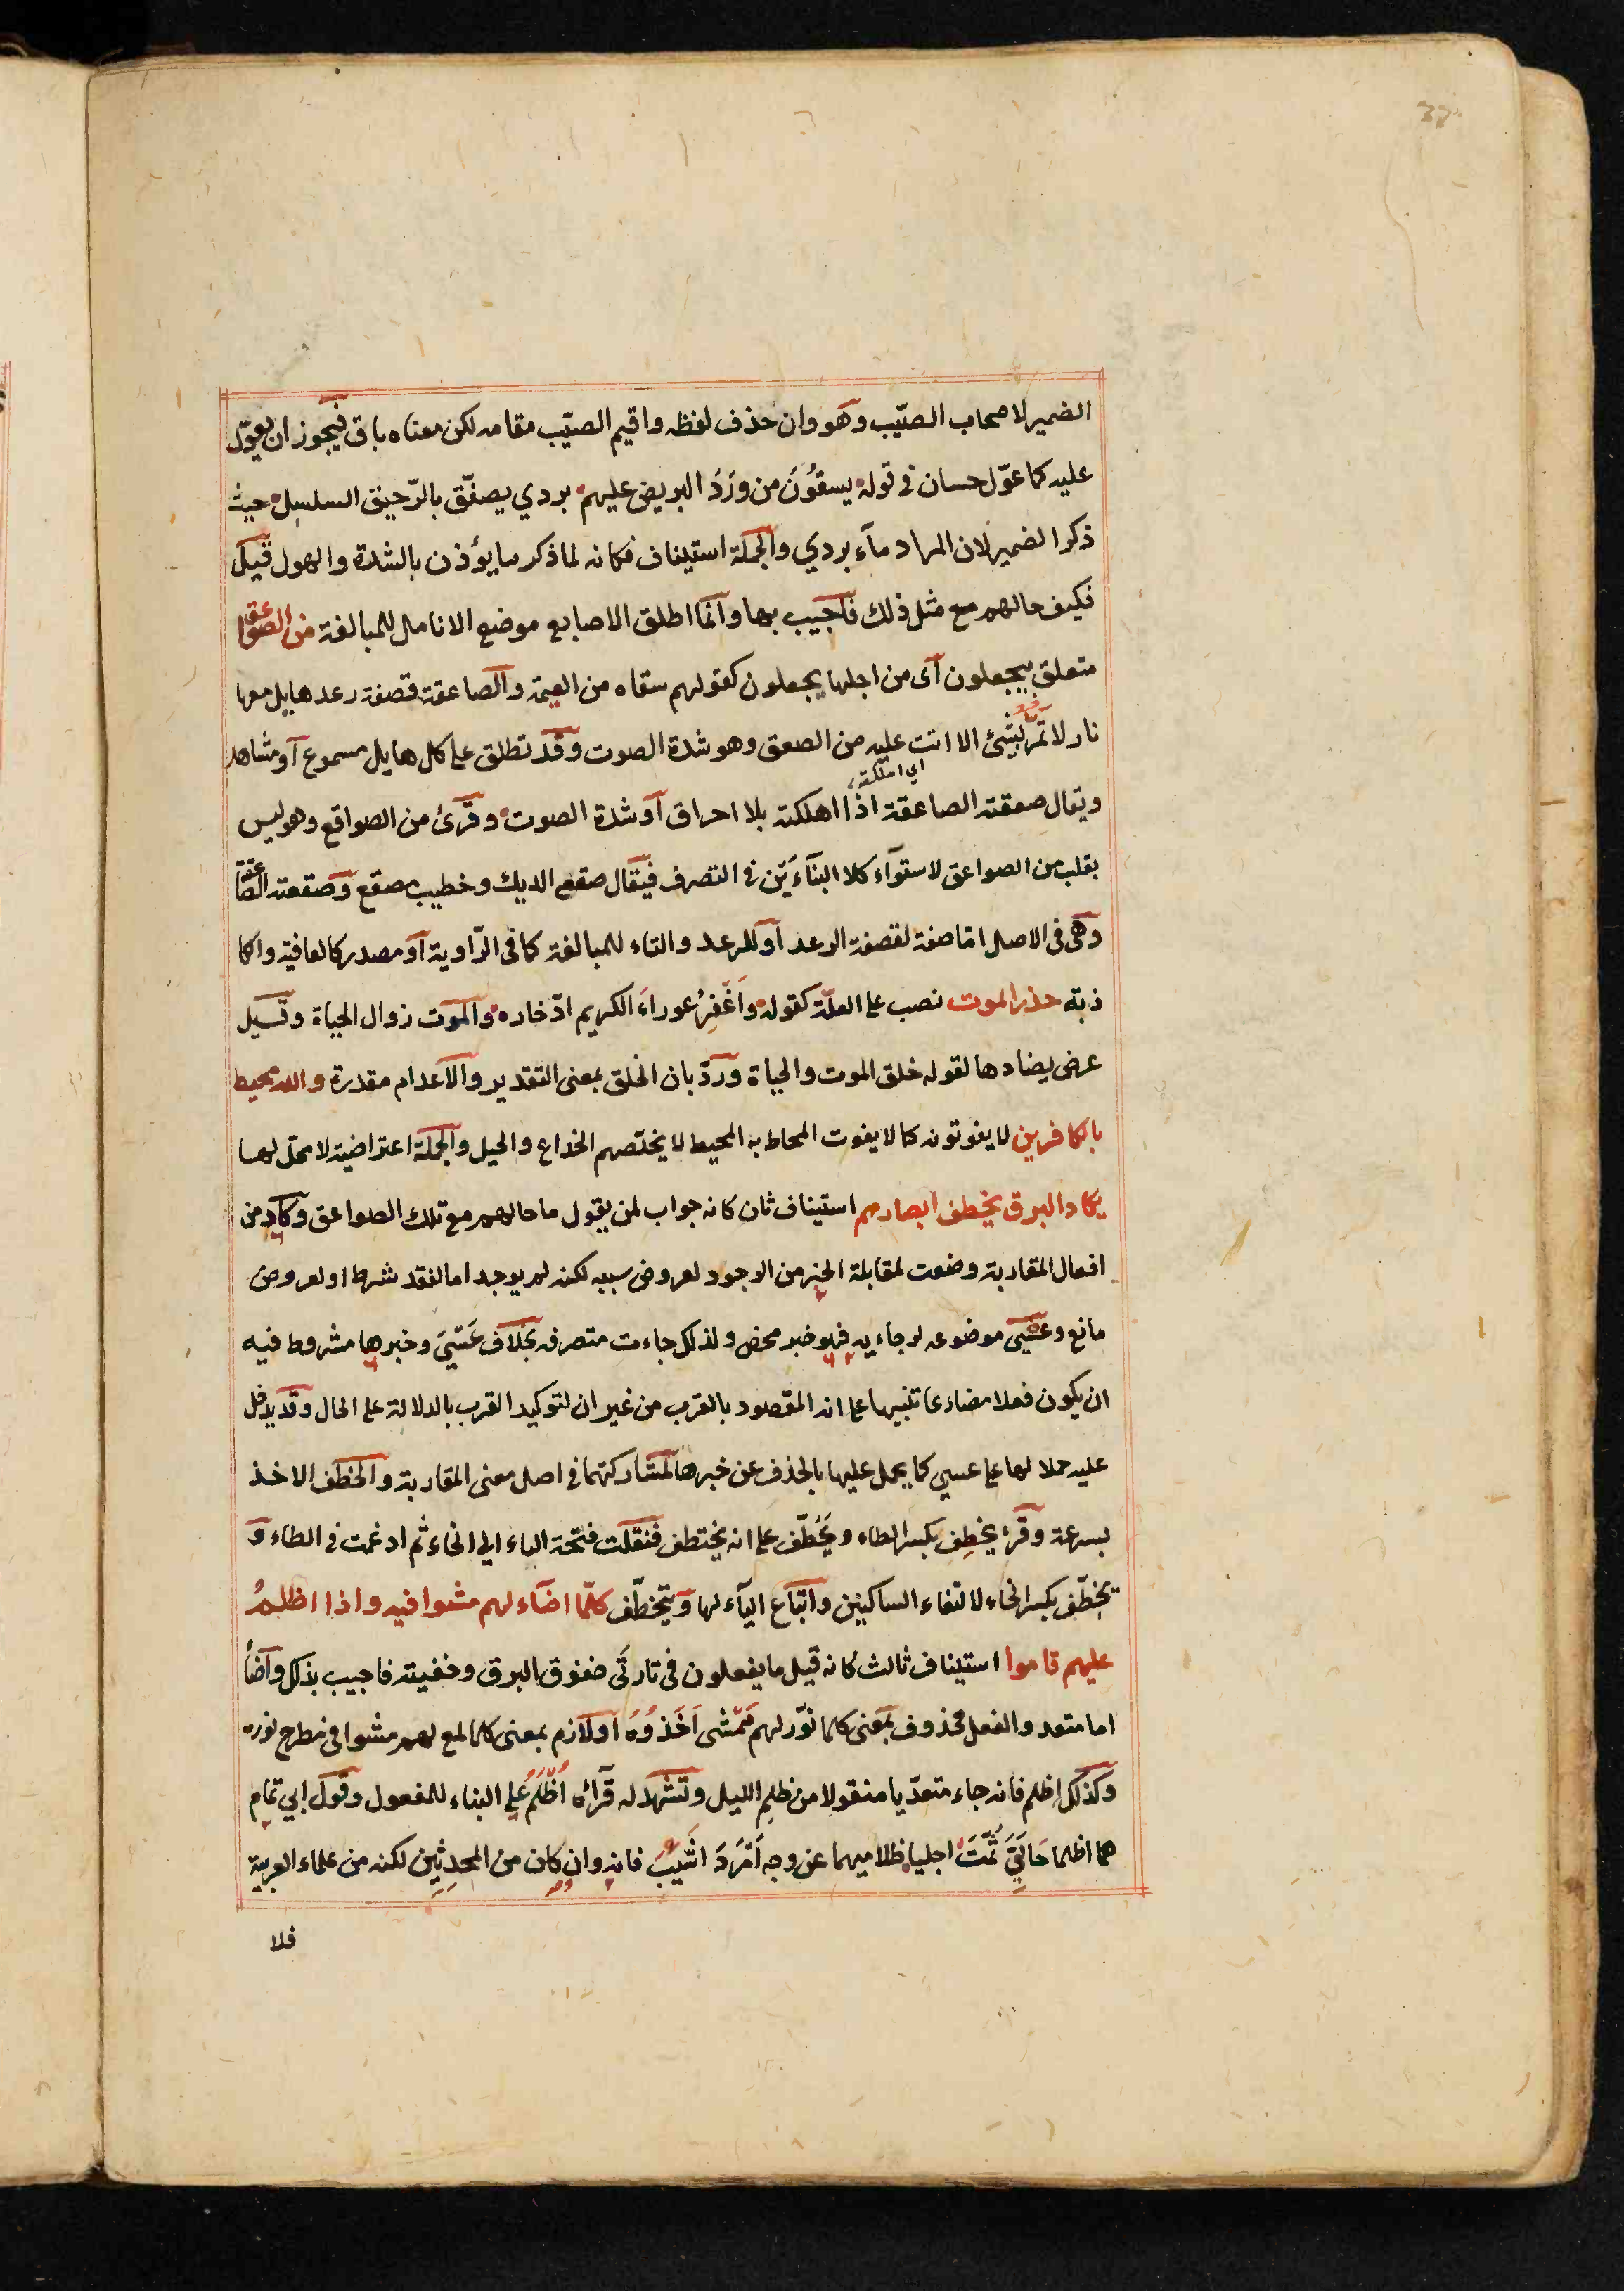 الضمير لاصحاب الصيّب وهو وان حذف لفظه واقيم الصيّب مقامه لكن معناه باق فيجوز ان يعوّل
عليه كما عوّل حسان في قوله يسقُونَ من ورَدَ البريص عليهم بردي يصفّق بالرّحيق السلسل حيث
ذكر الضمير لان المراد مآء بردي والجملة استيناف فكانه لما ذكر ما يؤذن بالشدة والهول قيل
فكيف حالهم مع مثل ذلك فاجيب بها وانّما اطلق الاصابع موضع الانامل للمبالغة من الصواعق
متعلق بيجعلون اى من اجلها يجعلون كقولهم سقاه من العيمة والصاعقة قصفة رعد هايل معها
نار لا تمرّ بشئ الا اتت عليه من الصعق وهو شدة الصوت وقد تطلق على كل هايل مسموع او مشاهد
اي اهلكته
ويقال صعقته الصاعقة اذا اهلكته بلا احراق او شدة الصوت وقرئ من الصواقع وهو ليس
بقلب من الصواعق لاستوآء كلا البنآءَيَن في التصرف فيقال صقع الديك وخطيب مصقع وصقعته الصاقعة
وهى فى الاصل اما صفة لقصفة الرعد او للرعد والتاء للمبالغة كما فى الرّاوية او مصدر كالعافية والكا
ذبة حذر الموت نصب على العلّة كقوله واَغفِرُ عوراءَ الكريم ادّخاره والموت زوال الحياة وقيل
عرض يضادها لقوله خلق الموت والحياة وردّ بان الخلق بمعنى التقدير والاعدام مقدرة والله محيط
بالكافرين لا يفوتونه كما لا يفوت المحاط به المحيط لا يخلّصهم الخداع والحيل والجملة اعتراضية لا محل لها
يكاد البرق يخطف ابصارهم استيناف ثان كانه جواب لمن يقول ما حالهم مع تلك الصواعق وكاد من
افعال المقاربة وضعت لمقابلة الخبر من الوجود لعروض سببه لكنه لم يوجد اما لفقد شرط او لعروض
مانع وعسى موضوعه لرجاءيه فهو خبر محض ولذلك جاءت متصرفه بخلاف عَسَيَ وخبرها مشروط فيه
ان يكون فعلا مضارعا تنبيها على انه المقصود بالقرب من غير ان لتوكيد القرب بالدلالة على الحال وقد يدخل
عليه حملا لها على عسي كما يحمل عليها بالحذف عن خبرها لمشاركتهما في اصل معنى المقاربة والخطف الاخذ
بسرعة وقرء يخطِف بكسر الطاء ويَخَطّف على انه يختطف فنقلت فتحة التاء الي الخاء ثم ادغمت في الطاء و
يخِطّف بكسر الخاء لالتقاء الساكنين واتباع اليآء لها ويتخطّف كلّما اضآء لهم مشوا فيه واذا اظلمُ
عليهم قاموا استيناف ثالث كانه قيل ما يفعلون فى تارتَى خفوق البرق وخفيته فاجيب بذلك واضأ
اما متعد والفعل محذوف بمعنى كلما نوّر لهم مَمْشى اَخَذوُهُ او لازم بمعنى كلما لمع لهم مشوا في مطرح نوره
وكذلك اظلم فانه جاء متعدّيا منقولا من ظلِم الليل وتشهد له قرآئه اُظلِمَ على البناء للمفعول وقول ابي تمام
هما اظلما حَالَيَّ ثُمَّتَ اجليا ظلاميهما عن وجه اَمْرَدَ اشيبُ فانه وان كان من المحدِثِين لكنه من علماء العربية
فلا